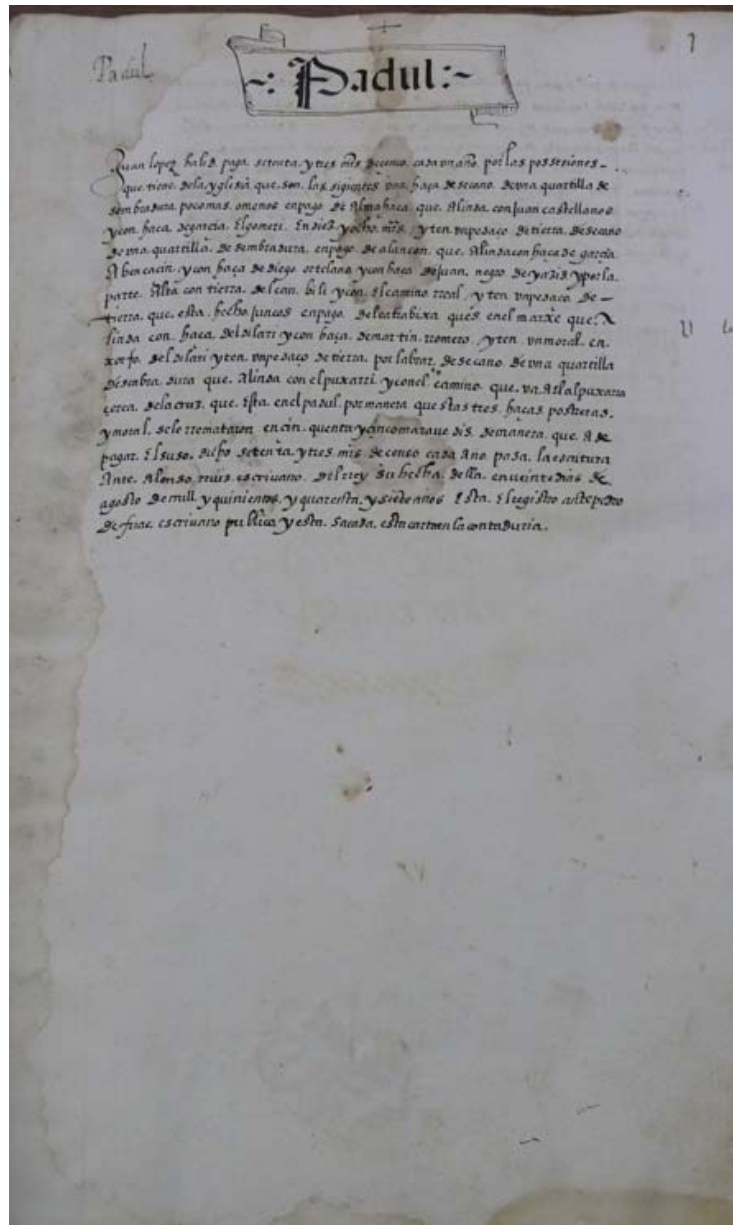 Padul
-: Padul :~
1
Juan lopez habid paga setenta y tres mrs de censo cada un año por las possesiones
que tiene dela yglesia que son las siguientes vna haça de secano de vna quartilla de
sembradura poco mas o menos en pago de Almahaca que Alinda con juan castellano
y con haça de garcia Elgomeri En diez y ocho mrs y ten vn pedaço de tierra de secano
de vna quartilla de sembradura en pago de alancon que Alinda con haça de garcia
Abencacin y con haça de diego ortelano y con haça de juan negro de yazid y por la
parte Alta con tierra del can bili y con El camino rreal y ten vn pedaço de
tierra que esta hecho juncos en pago del ques en el marxe que A
linda con haça del dilari y con haça de martin rromero y ten vn moral en
xorfo del dilari y ten vn pedaço de tierra por labrar de secano de vna quartilla
de sembra dura que Alinda con el puxarri y con el camino que va Al alpuxarra
çerca dela cruz que Esta en el padul por manera que stas tres haças postreras
y moral se le rremataron en cin quenta y cinco marauedis de manera que A de
pagar El suso dicho setenta y tres mrs de censo cada Año paso la escritura
Ante Alonso rruis escriuano del rey su fecha della en veinte dias de
agosto de mill y quinientos y quarenta y siete años Esta El registro ante pedro
de frias escriuano publico y esta sacada esta carta en la contaduria